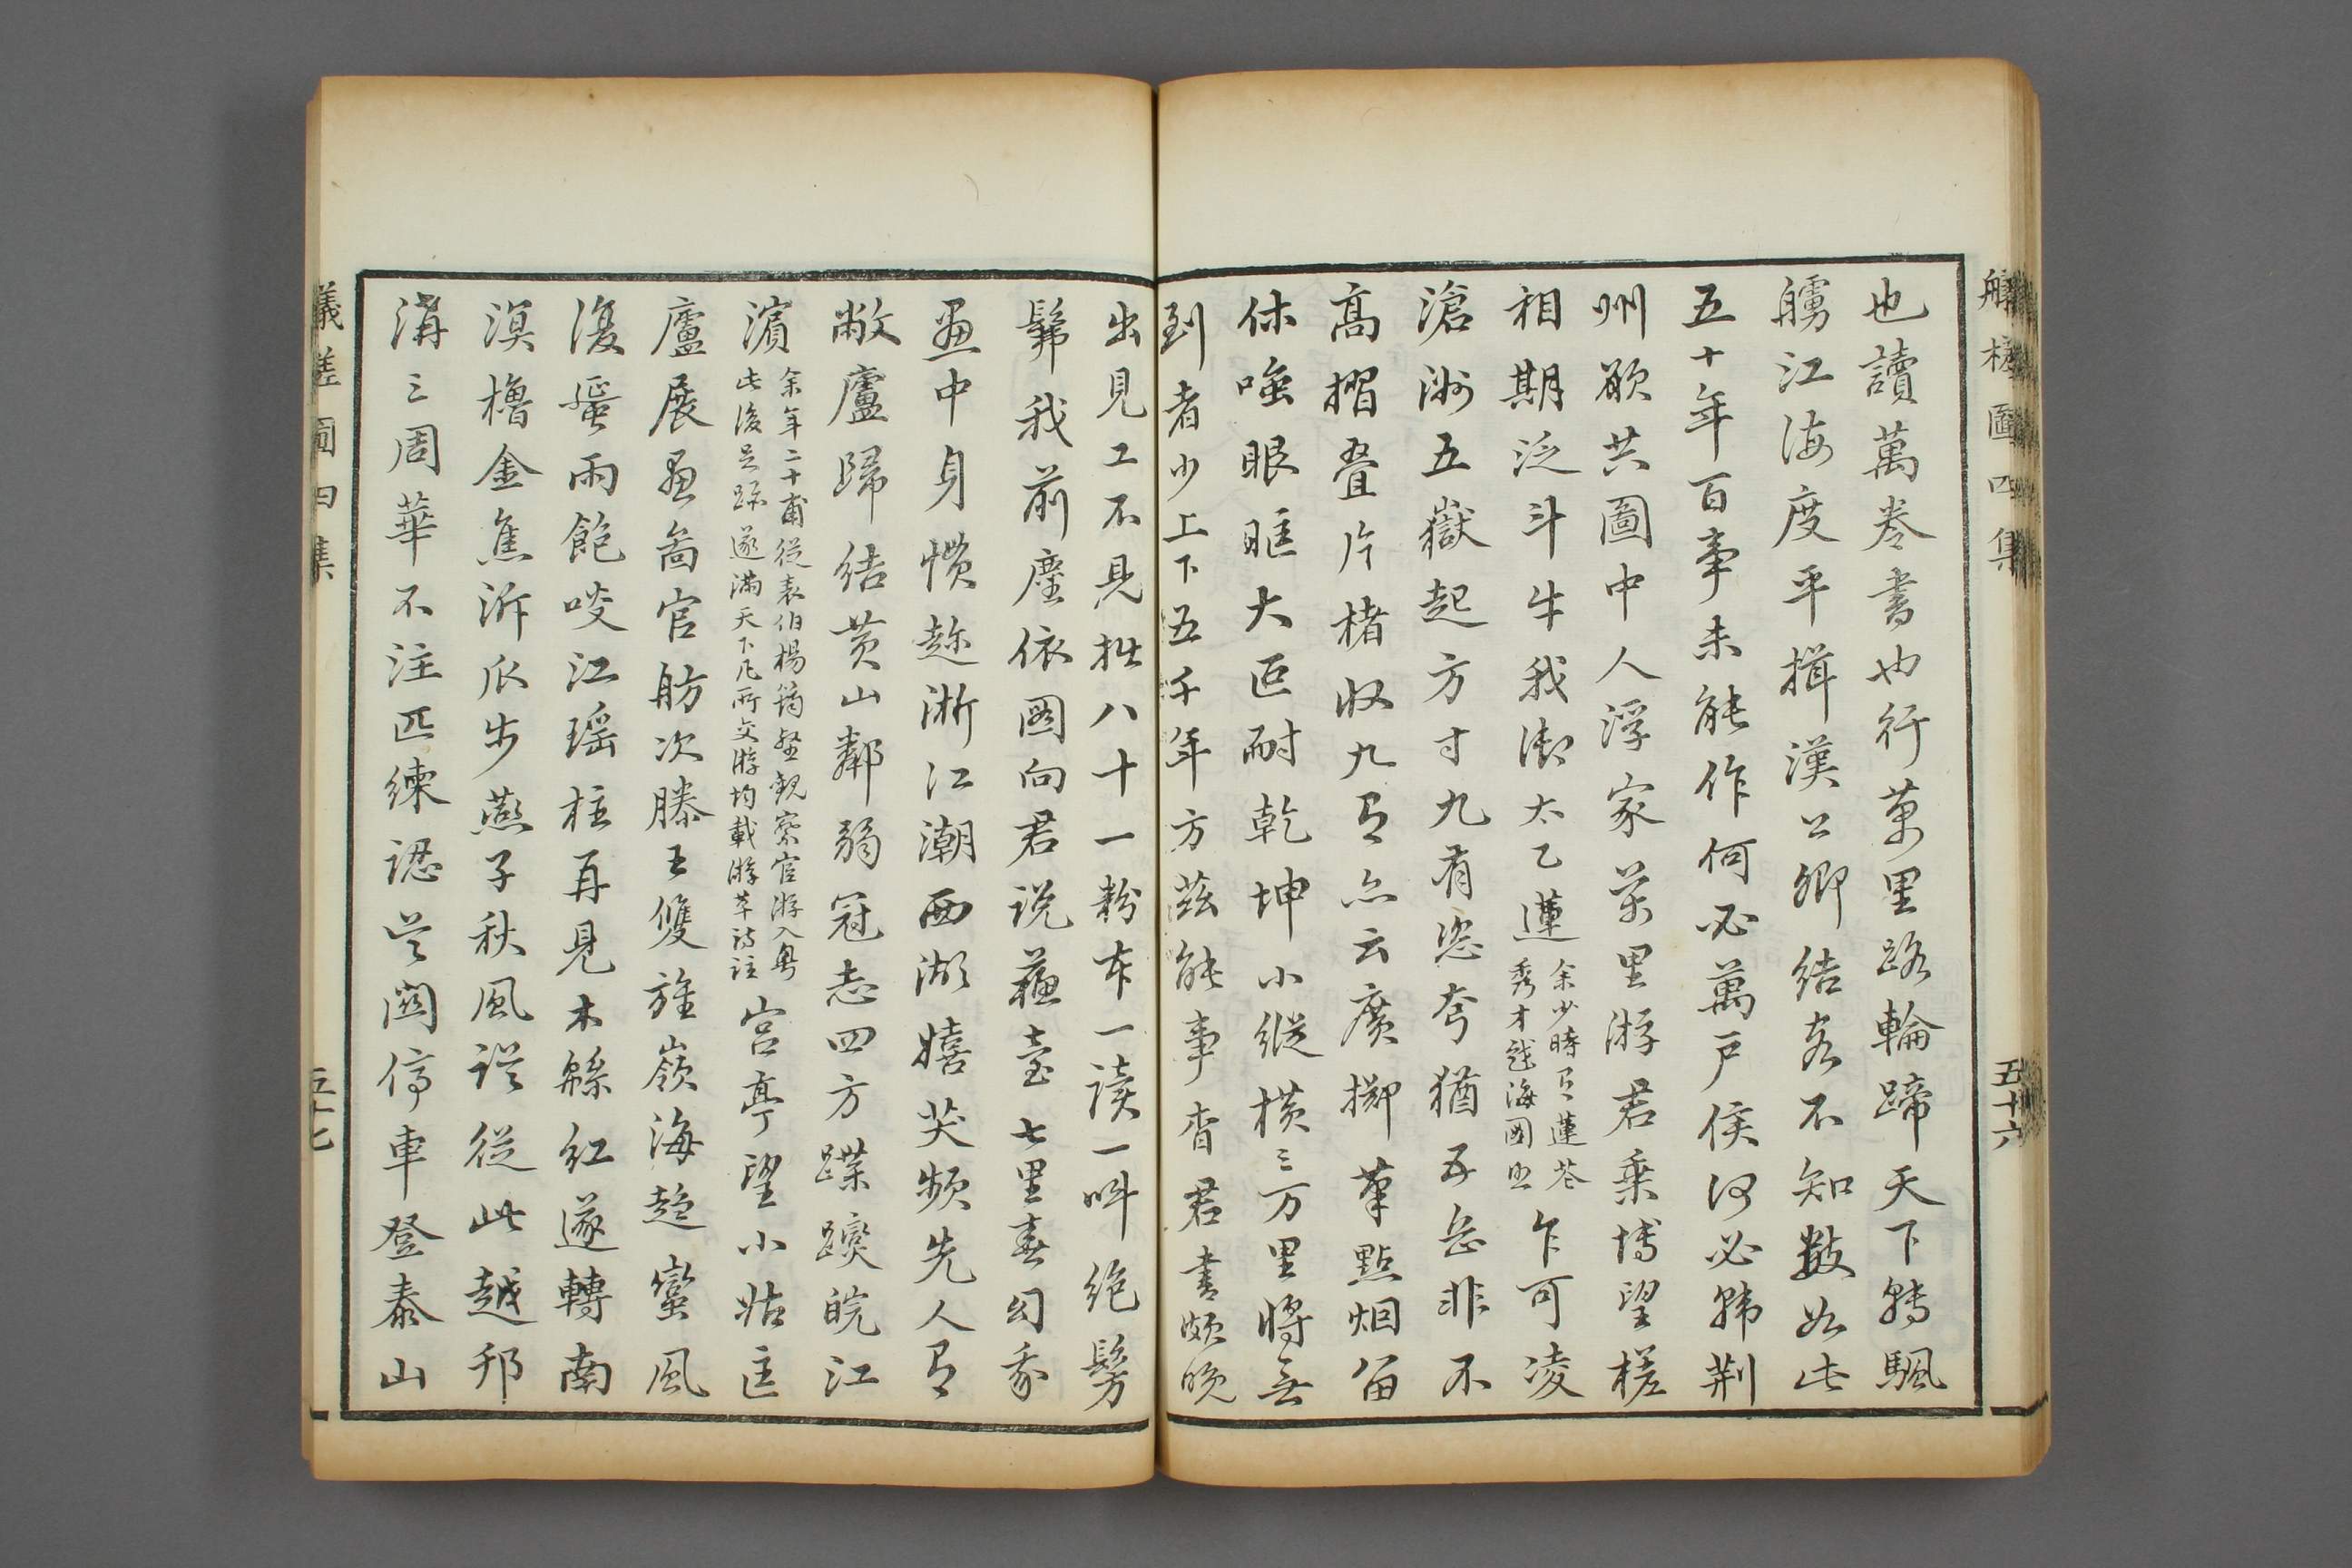 艤槎圖四集
五十六
也讀萬卷書也行萬里路輪蹄天下轉颿
艣江海度平揖漢公卿結客不知數如此
五十年百事未能作何必萬戶侯何必歸荆
州欲共圖中人浮家萬里游君乘博望槎
相期泛斗牛我御太乙蓮
余少時有蓮花
秀才
海國
乍可凌
滄洲五嶽起方寸九有恣夸猶五岳非不
高摺疊片楮收九有亦云廣擲筆點烟留
休嗤眼眶大叵耐乾坤小縱橫三万里將無
到者少上下五千年方茲能事杳君畫頗晚
出見工不見拙八十一粉本一讀一叫絕髣
髴我前塵依圖向君說蘇臺七里春幻我
畫中身慣趂浙江潮西湖嬉笑頻先人有
敝廬歸結黃山鄰弱冠志四方蹀躞皖江
濱
余年二十甫從表伯楊筠
觀察官游入粵
此後足跡遂滿天下凡所交游均載游草詩註
宮亭望小姑匡
廬展畫啚官舫次滕王雙旌嶺海趂蠻風
復蜑雨飽啖江瑤柱再見木緜紅遂轉南
溟櫓金焦泝瓜步燕子秋風從此越邗
溝三周華不注匹練認吳閶停車登泰山
艤槎圖四集
五十七